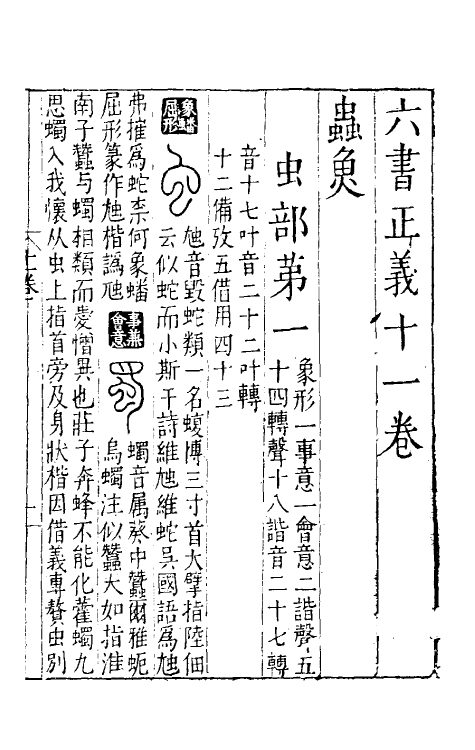 六書正義十一卷
蟲魚
虫部第一
象形一事意一會意二諧聲五
十四轉聲十八諧音二十七轉
音十七叶音二十二叶轉
十二備攷五借用四十三
象蟠屈形
虺音毀蛇類一名蝮博三寸首大擘指陸佃
云似蛇而小斯干詩維虺維蛇吳國語為虺
弗摧爲蛇柰何象蟠
屈形篆作虺楷譌虺
事兼會意
蠋音属葵中蠶爾雅蚅
烏蠋注似蠶大如指淮
南子蠶与蠋相類而愛憎異也莊子奔蜂不能化藿蠋九
思蠋入我懷从虫上指首旁及身狀楷因借義專贅虫別
十一卷
一